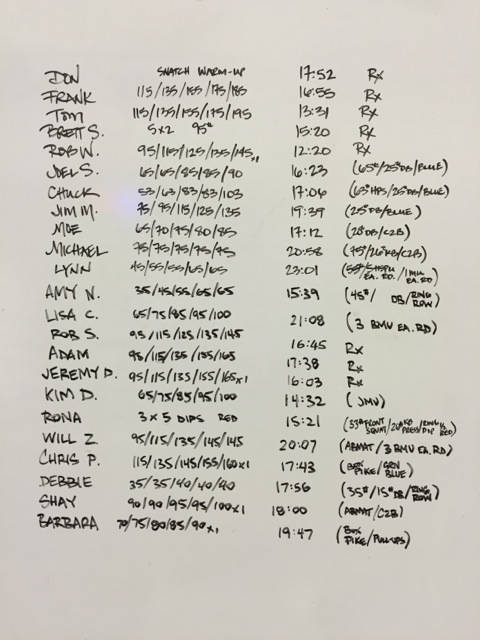 DON SNATCH WARM-UP 17:52 Rx
FRANK 115/135/155/175/185 16:55 Rx
TOM 115/135/155/175/195 13:31 Rx
BRETT S. 5x2 95# 15:20 Rx
ROB W. 95/115/125/135/145 12:20 Rx
JOEL S. 65/65/85/85/90 16:23 (65#/25#DB/BLUE)
CHUCK 53/63/83/83/103 17:06 (63#HPS/25#DB/BLUE)
JIM M. 75/95/115/125/135 19:39 (25#DB/BLUE)
MOE 65/70/75/80/85 17:12 (20#DB/C2B)
MICHAEL 75/75/75/75/75 20:58 (75#/26#KB/C2B)
LYNN 45/55/55/65/65 23:01 EA. RD. EA. RD)
AMY N. 35/45/55/65/65 15:39 (45#/ DB/RING ROW)
LISA C. 65/75/85/95/100 21:08 (3 BMU EA. RD)
ROB S. 95/115/125/135/145 16:45 Rx
ADAM 95/115/135/155/165 17:38 Rx
JEREMY D. 95/115/135/155/165x1 16:03 Rx
KIM D. 65/75/85/95/100 14:32 (JMU)
RONA 3x5 DIPS RED 15:21 FRONT SQUAT PRESS DIP RED)
WILL Z 95/115/135/145/145 20:07 (ABMAT/3 BMU EA. RD)
CHRIS P. 115/135/145/155/160x1 17:43 (BOX PIKE/GRN BLUE)
DEBBIE 35/35/40/40/40 17:56 (35#/15#DB/RING ROW)
SHAY 90/90/95/95/100x1 18:00 (ABMAT/C2B)
BARBARA 70/75/80/85/90x1 19:47 (BOX PIKE/PULLUPS)